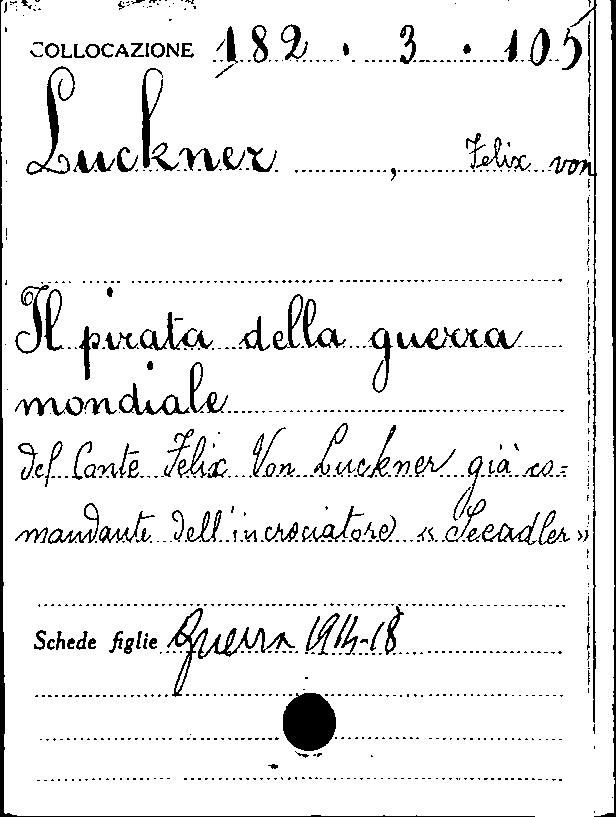 COLLOCAZIONE 182 . 3 . 105
Luckner , Felix von
Il pirata della guerra
mondiale
del Conte Felix Von Luckner già co=
mandante dell'incrociatore « Seeadler »
Schede figlie Guerra 1914-18